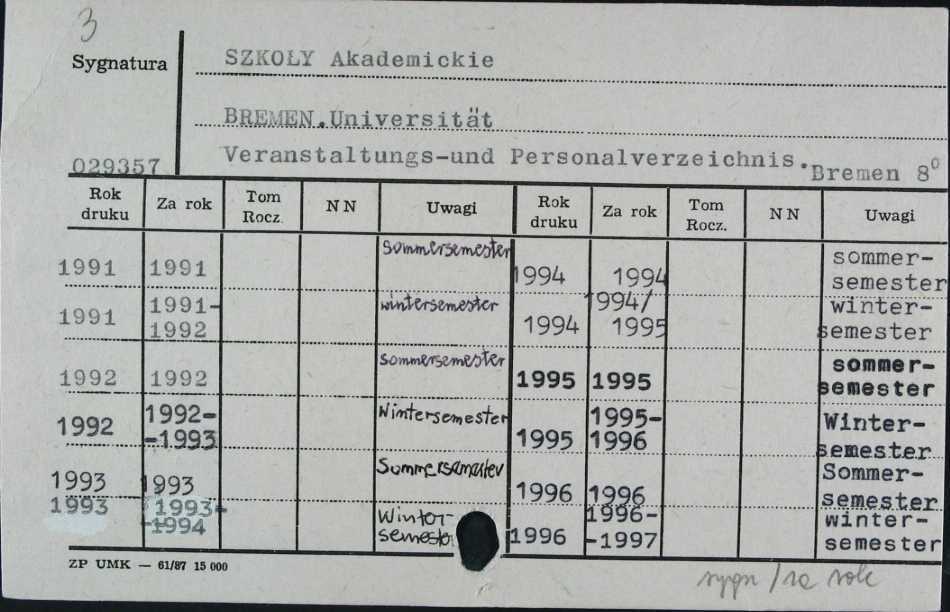 3
Sygnatura SZKOŁY Akademickie
BREMEN.Universität
029357 Veranstaltungs-und Personalverzeichnis. Bremen 8°
Rok druku Za rok Tom Rocz. NN Uwagi Rok druku Za rok Tom Rocz. NN Uwagi
1991 1991 sommersemester 1994 1994 sommer-semester
1991 1991-1992 wintersemester 1994 1994/1995 winter-semester
1992 1992 sommersemester 1995 1995 sommer-semester
1992 1992--1993 Wintersemester 1995 1995-1996 Winter-semester
1993 1993 Sommersemester 1996 1996 Sommer-semester
1993 1993--1994 Winter-semester 1996 1996--1997 winter-semester
ZP UMK — 61/87 15 000
sygn / za rok